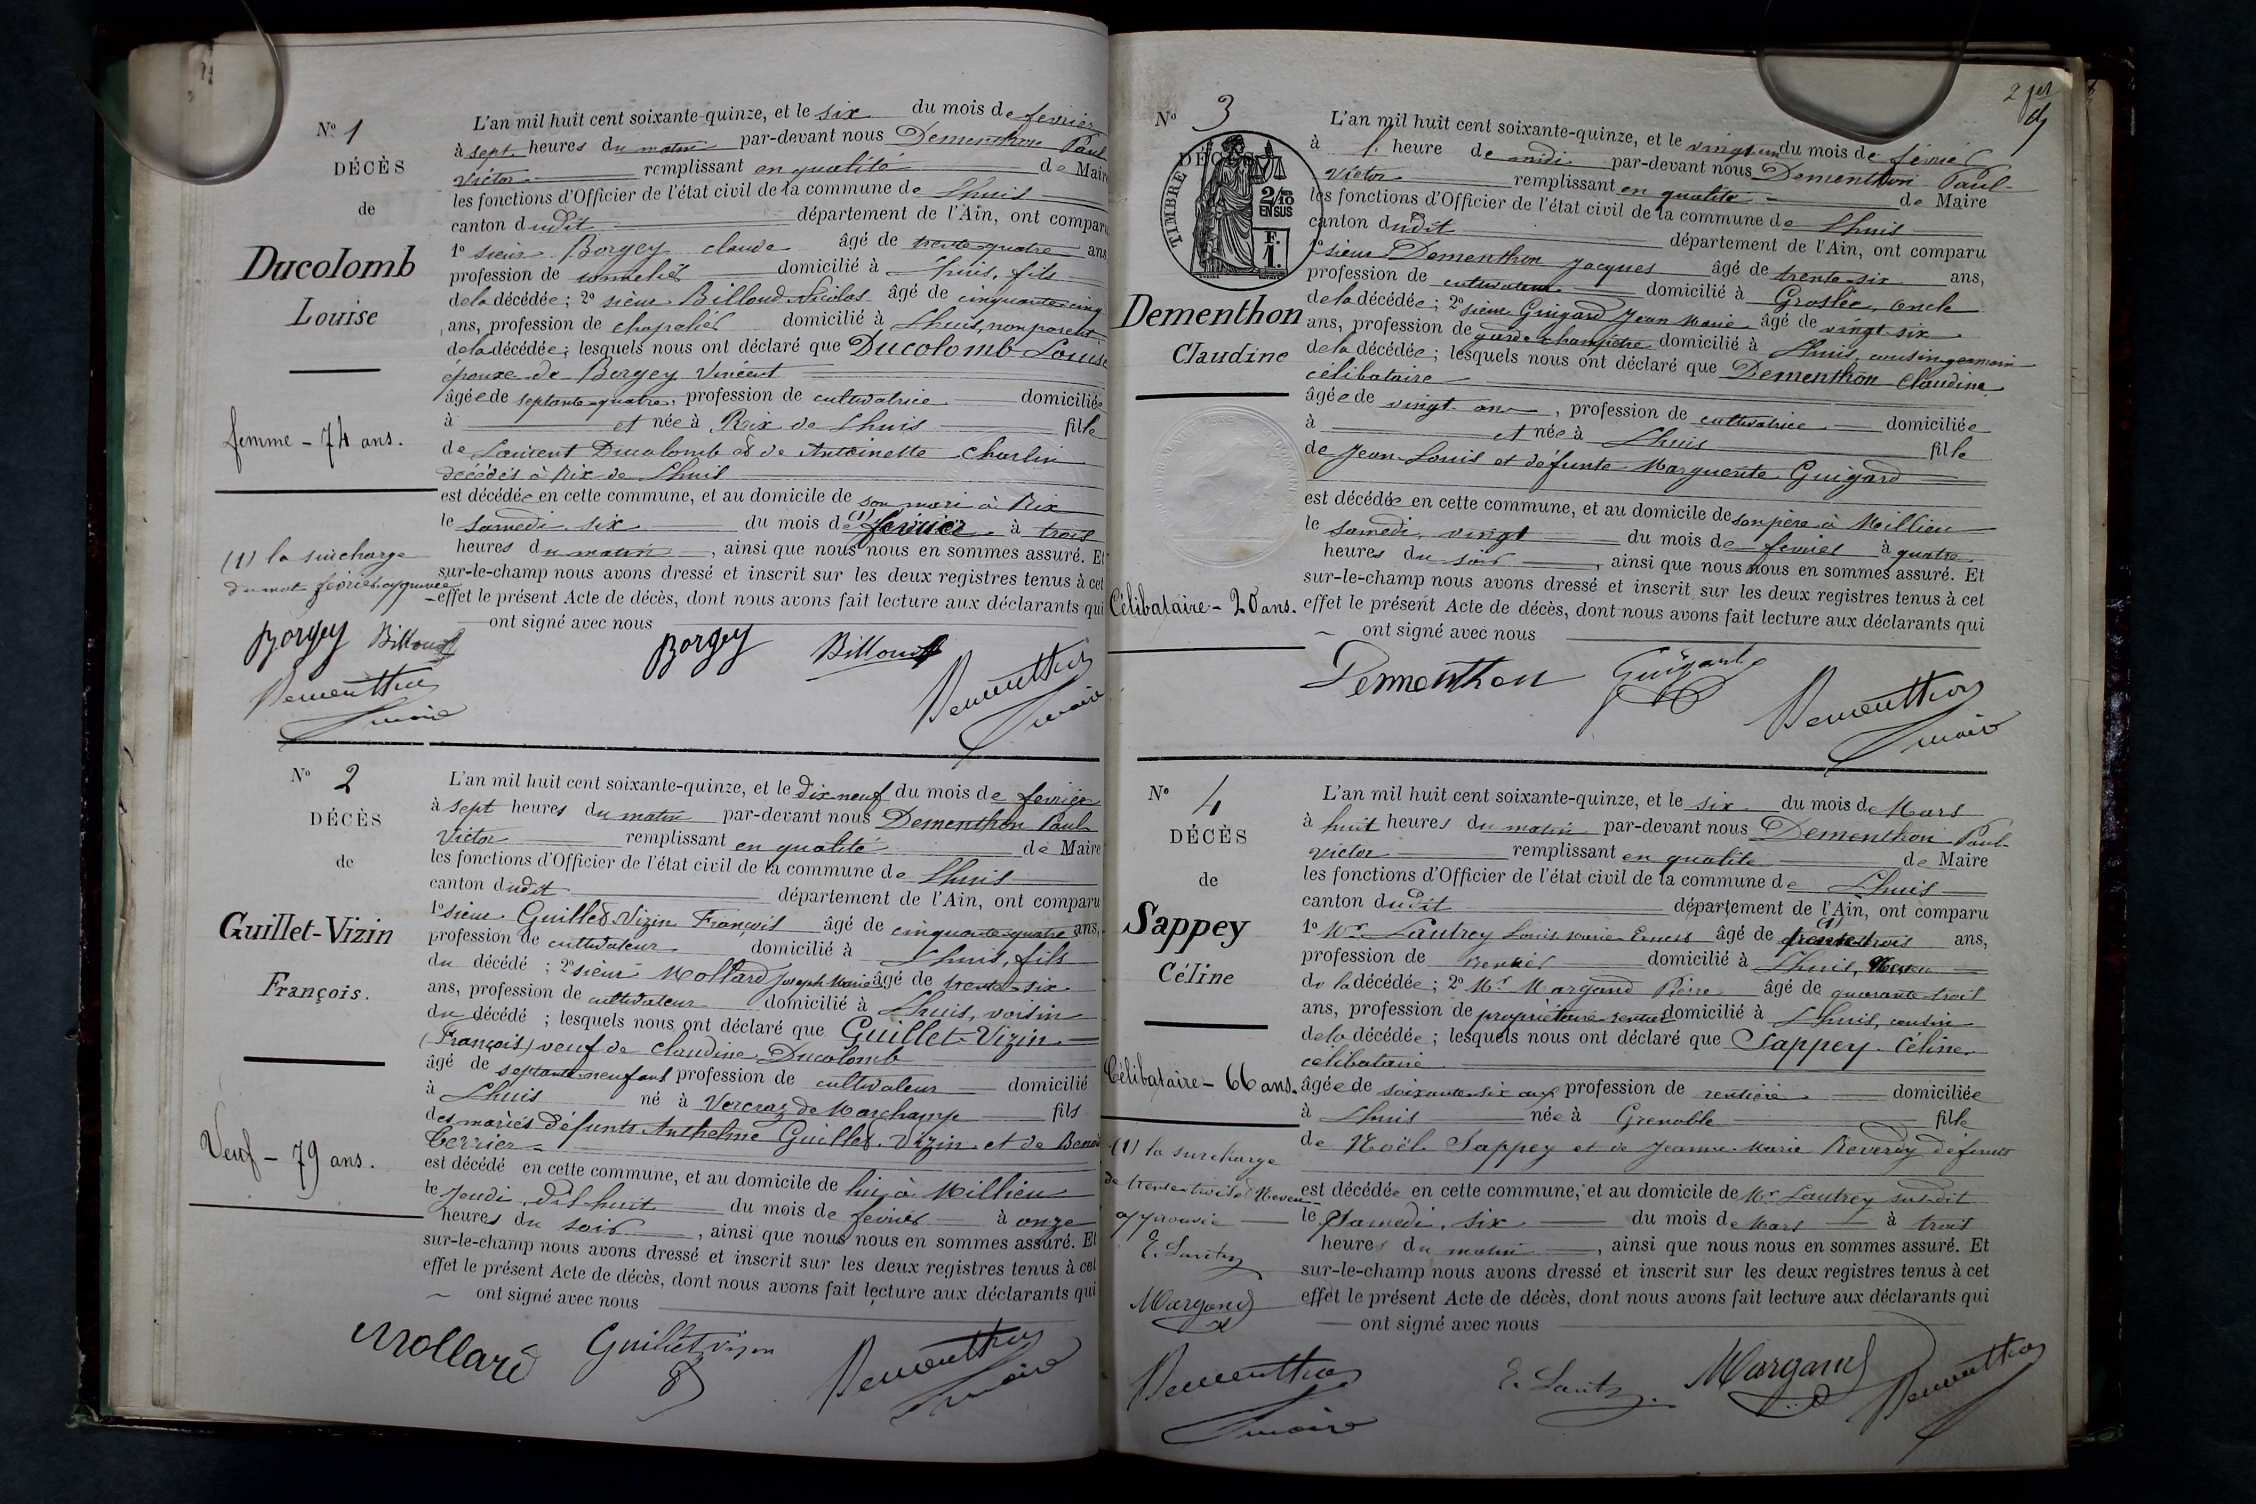 N° 1
DÉCÈS
de
Ducolomb
Louise
femme - 74 ans.
(1) la surcharge
du mot février approuvée
Borgey Billoud
Dementhon
maire
L'an mil huit cent soixante-quinze, et le six du mois de fevrier
à sept heures du matin par-devant nous Dementhon Paul
Victor remplissant en qualité de Maire
les fonctions d'Officier de l'état civil de la commune de Lhuis
canton dudit département de l'Ain, ont comparu
1° sieur Borgey claude âgé de trente-quatre ans
profession de domicilié à Lhuis, fils
de la décédée; 2° sieur Billoud Nicolas âgé de cinquante cinq
ans, profession de chapelier domicilié à Lhuis, non parent
de la décédée; lesquels nous ont déclaré que Ducolomb Louise
épouse de Borgey Vincent
âgée de septante-quatre, profession de cultivatrice domiciliée
à et née à Rix de Lhuis fille
de Laurent Ducolomb & de Antoinette Charlin
décédés à Rix de Lhuis
est décédée en cette commune, et au domicile de son mari à Rix
le samedi six du mois de (1) fevrier à trois
heures du matin, ainsi que nous nous en sommes assuré. Et
sur-le-champ nous avons dressé et inscrit sur les deux registres tenus à cet
effet le présent Acte de décès, dont nous avons fait lecture aux déclarants qui
ont signé avec nous
Borgey Billoud Dementhon
maire
N° 2
DÉCÈS
de
Guillet-Vizin
François.
Veuf - 79 ans.
L'an mil huit cent soixante-quinze, et le dix neuf du mois de fevrier
à sept heures du matin par-devant nous Dementhon Paul
Victor remplissant en qualité de Maire
les fonctions d'Officier de l'état civil de la commune de Lhuis
canton dudit département de l'Ain, ont comparu
1° sieur Guillet-Vizin François âgé de cinquante-quatre ans,
profession de cultivateur domicilié à Lhuis, fils
du décédé; 2° sieur Mollard Joseph Marie âgé de trente-six
ans, profession de cultivateur domicilié à Lhuis, voisin
du décédé; lesquels nous ont déclaré que Guillet-Vizin
(François) veuf de claudine Ducolomb
âgé de septante-neuf ans profession de cultivateur domicilié
à Lhuis né à Vercraz de Marchamp fils
des mariés défunts Anthelme Guillet-Vizin et de
Terrier
est décédé en cette commune, et au domicile de lui, à Millieu
le Jeudi dix huit du mois de fevrier à onze
heures du soir, ainsi que nous nous en sommes assuré. Et
sur-le-champ nous avons dressé et inscrit sur les deux registres tenus à cet
effet le présent Acte de décès, dont nous avons fait lecture aux déclarants qui
ont signé avec nous
Mollard Guillet Vizin Dementhon
maire
2
N° 3
DÉCÈS
TIMBRE
2/10 EN SUS
F. 1.
Dementhon
Claudine
Célibataire - 20 ans.
L'an mil huit cent soixante-quinze, et le vingt un du mois de février
à 1. heure de midi par-devant nous Dementhon Paul-
Victor remplissant en qualité de Maire
les fonctions d'Officier de l'état civil de la commune de Lhuis
canton dudit département de l'Ain, ont comparu
1° sieur Dementhon Jacques âgé de trente-six ans,
profession de cultivateur domicilié à Groslée, oncle
de la décédée; 2° sieur Guigard Jean Marie âgé de vingt-six
ans, profession de garde champêtre domicilié à Lhuis, cousin germain
de la décédée; lesquels nous ont déclaré que Dementhon Claudine
célibataire
âgée de vingt ans, profession de cultivatrice domiciliée
à et née à Lhuis fille
de Jean-Louis et défunte Marguerite Guigard
est décédée en cette commune, et au domicile de son père à Millieu
le samedi, vingt du mois de fevrier à quatre
heures du soir, ainsi que nous nous en sommes assuré. Et
sur-le-champ nous avons dressé et inscrit sur les deux registres tenus à cet
effet le présent Acte de décès, dont nous avons fait lecture aux déclarants qui
ont signé avec nous
Dementhon Guigard Dementhon
maire
N° 4
DÉCÈS
de
Sappey
Céline
Célibataire - 66 ans.
(1) la surcharge
de trente trois & Neveu
approuvée
E. Lautrey
Margand
Dementhon
maire
L'an mil huit cent soixante-quinze, et le six du mois de Mars
à huit heures du matin par-devant nous Dementhon Paul-
Victor remplissant en qualité de Maire
les fonctions d'Officier de l'état civil de la commune de Lhuis
canton dudit département de l'Ain, ont comparu
1° Mr Lautrey Louis Marie Ernest âgé de (1) trente trois ans,
profession de rentier domicilié à Lhuis, Neveu
de la décédée; 2° Mr Margand Pierre âgé de quarante-trois
ans, profession de propriétaire rentier domicilié à Lhuis, cousin
de la décédée; lesquels nous ont déclaré que Sappey Céline
célibataire
âgée de soixante-six ans profession de rentière domiciliée
à Lhuis née à Grenoble fille
de Noël Sappey et de Jeanne-Marie Reverdy défunts
est décédée en cette commune, et au domicile de Mr Lautrey susdit
le Samedi, six du mois de Mars à trois
heures du matin, ainsi que nous nous en sommes assuré. Et
sur-le-champ nous avons dressé et inscrit sur les deux registres tenus à cet
effet le présent Acte de décès, dont nous avons fait lecture aux déclarants qui
ont signé avec nous
E. Lautrey Margand Dementhon